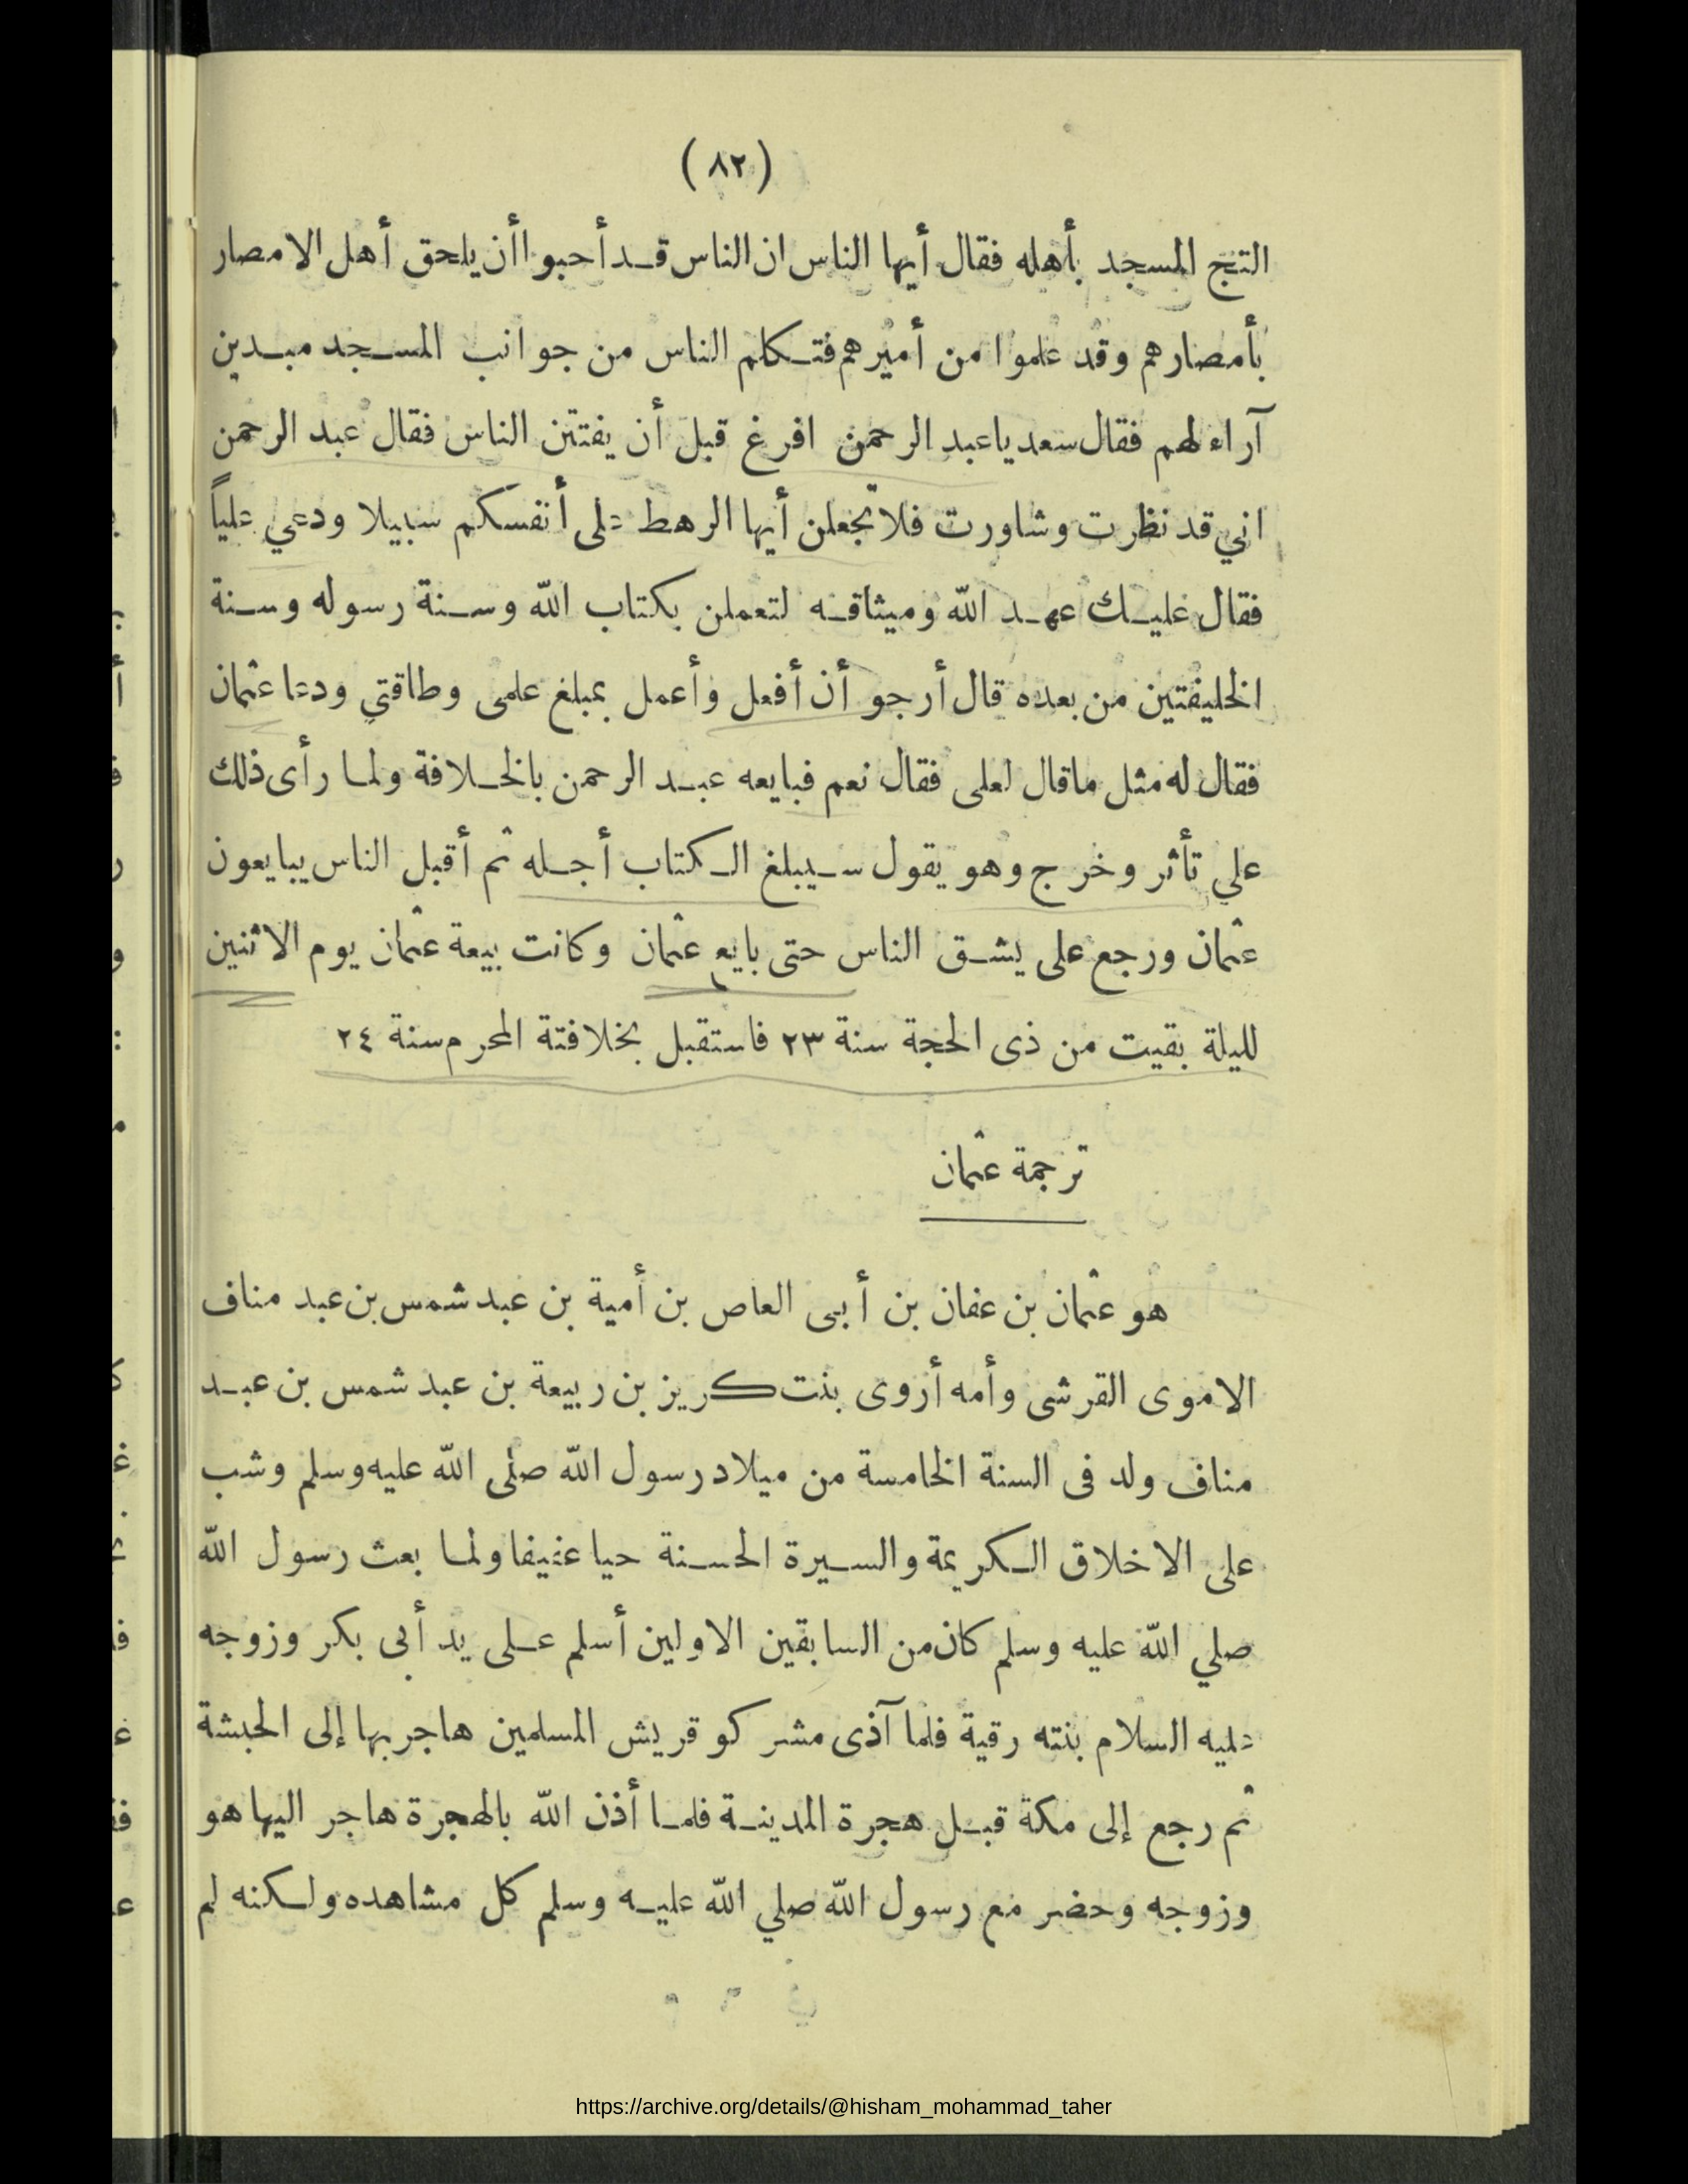 (٨٢)
التج المسجد بأهله فقال أيها الناس ان الناس قد أحبوا أن يلحق أهل الامصار
بأمصارهم وقد علموا من أميرهم فتكلم الناس من جوانب المسجد مبدين
آراء لهم فقال سعد ياعبد الرحمن افرغ قبل أن يفتتن الناس فقال عبد الرحمن
اني قد نظرت وشاورت فلا تجعلن أيها الرهط على أنفسكم سبيلا ودعي علياً
فقال عليك عهد الله وميثاقه لتعملن بكتاب الله وسنة رسوله وسنة
الخليفتين من بعده قال أرجو أن أفعل وأعمل بمبلغ علمى وطاقتي ودعا عثمان
فقال له مثل ماقال لعلى فقال نعم فبايعه عبد الرحمن بالخلافة ولما رأى ذلك
علي تأثر وخرج وهو يقول سيبلغ الكتاب أجله ثم أقبل الناس يبايعون
عثمان ورجع على يشق الناس حتى بايع عثمان وكانت بيعة عثمان يوم الاثنين
لليلة بقيت من ذى الحجة سنة ٢٣ فاستقبل بخلافتة المحرم سنة ٢٤
ترجمة عثمان
هو عثمان بن عفان بن أبى العاص بن أمية بن عبد شمس بن عبد مناف
الاموى القرشى وأمه أروى بنت كريز بن ربيعة بن عبد شمس بن عبد
مناف ولد فى السنة الخامسة من ميلاد رسول الله صلى الله عليه وسلم وشب
على الاخلاق الكريمة والسيرة الحسنة حيا عفيفا ولما بعث رسول الله
صلي الله عليه وسلم كان من السابقين الاولين أسلم على يد أبى بكر وزوجه
عليه السلام بنته رقية فلما آذى مشركو قريش المسلمين هاجر بها إلى الحبشة
ثم رجع إلى مكة قبل هجرة المدينة فلما أذن الله بالهجرة هاجر اليها هو
وزوجه وحضر مع رسول الله صلي الله عليه وسلم كل مشاهده ولكنه لم
https://archive.org/details/@hisham_mohammad_taher